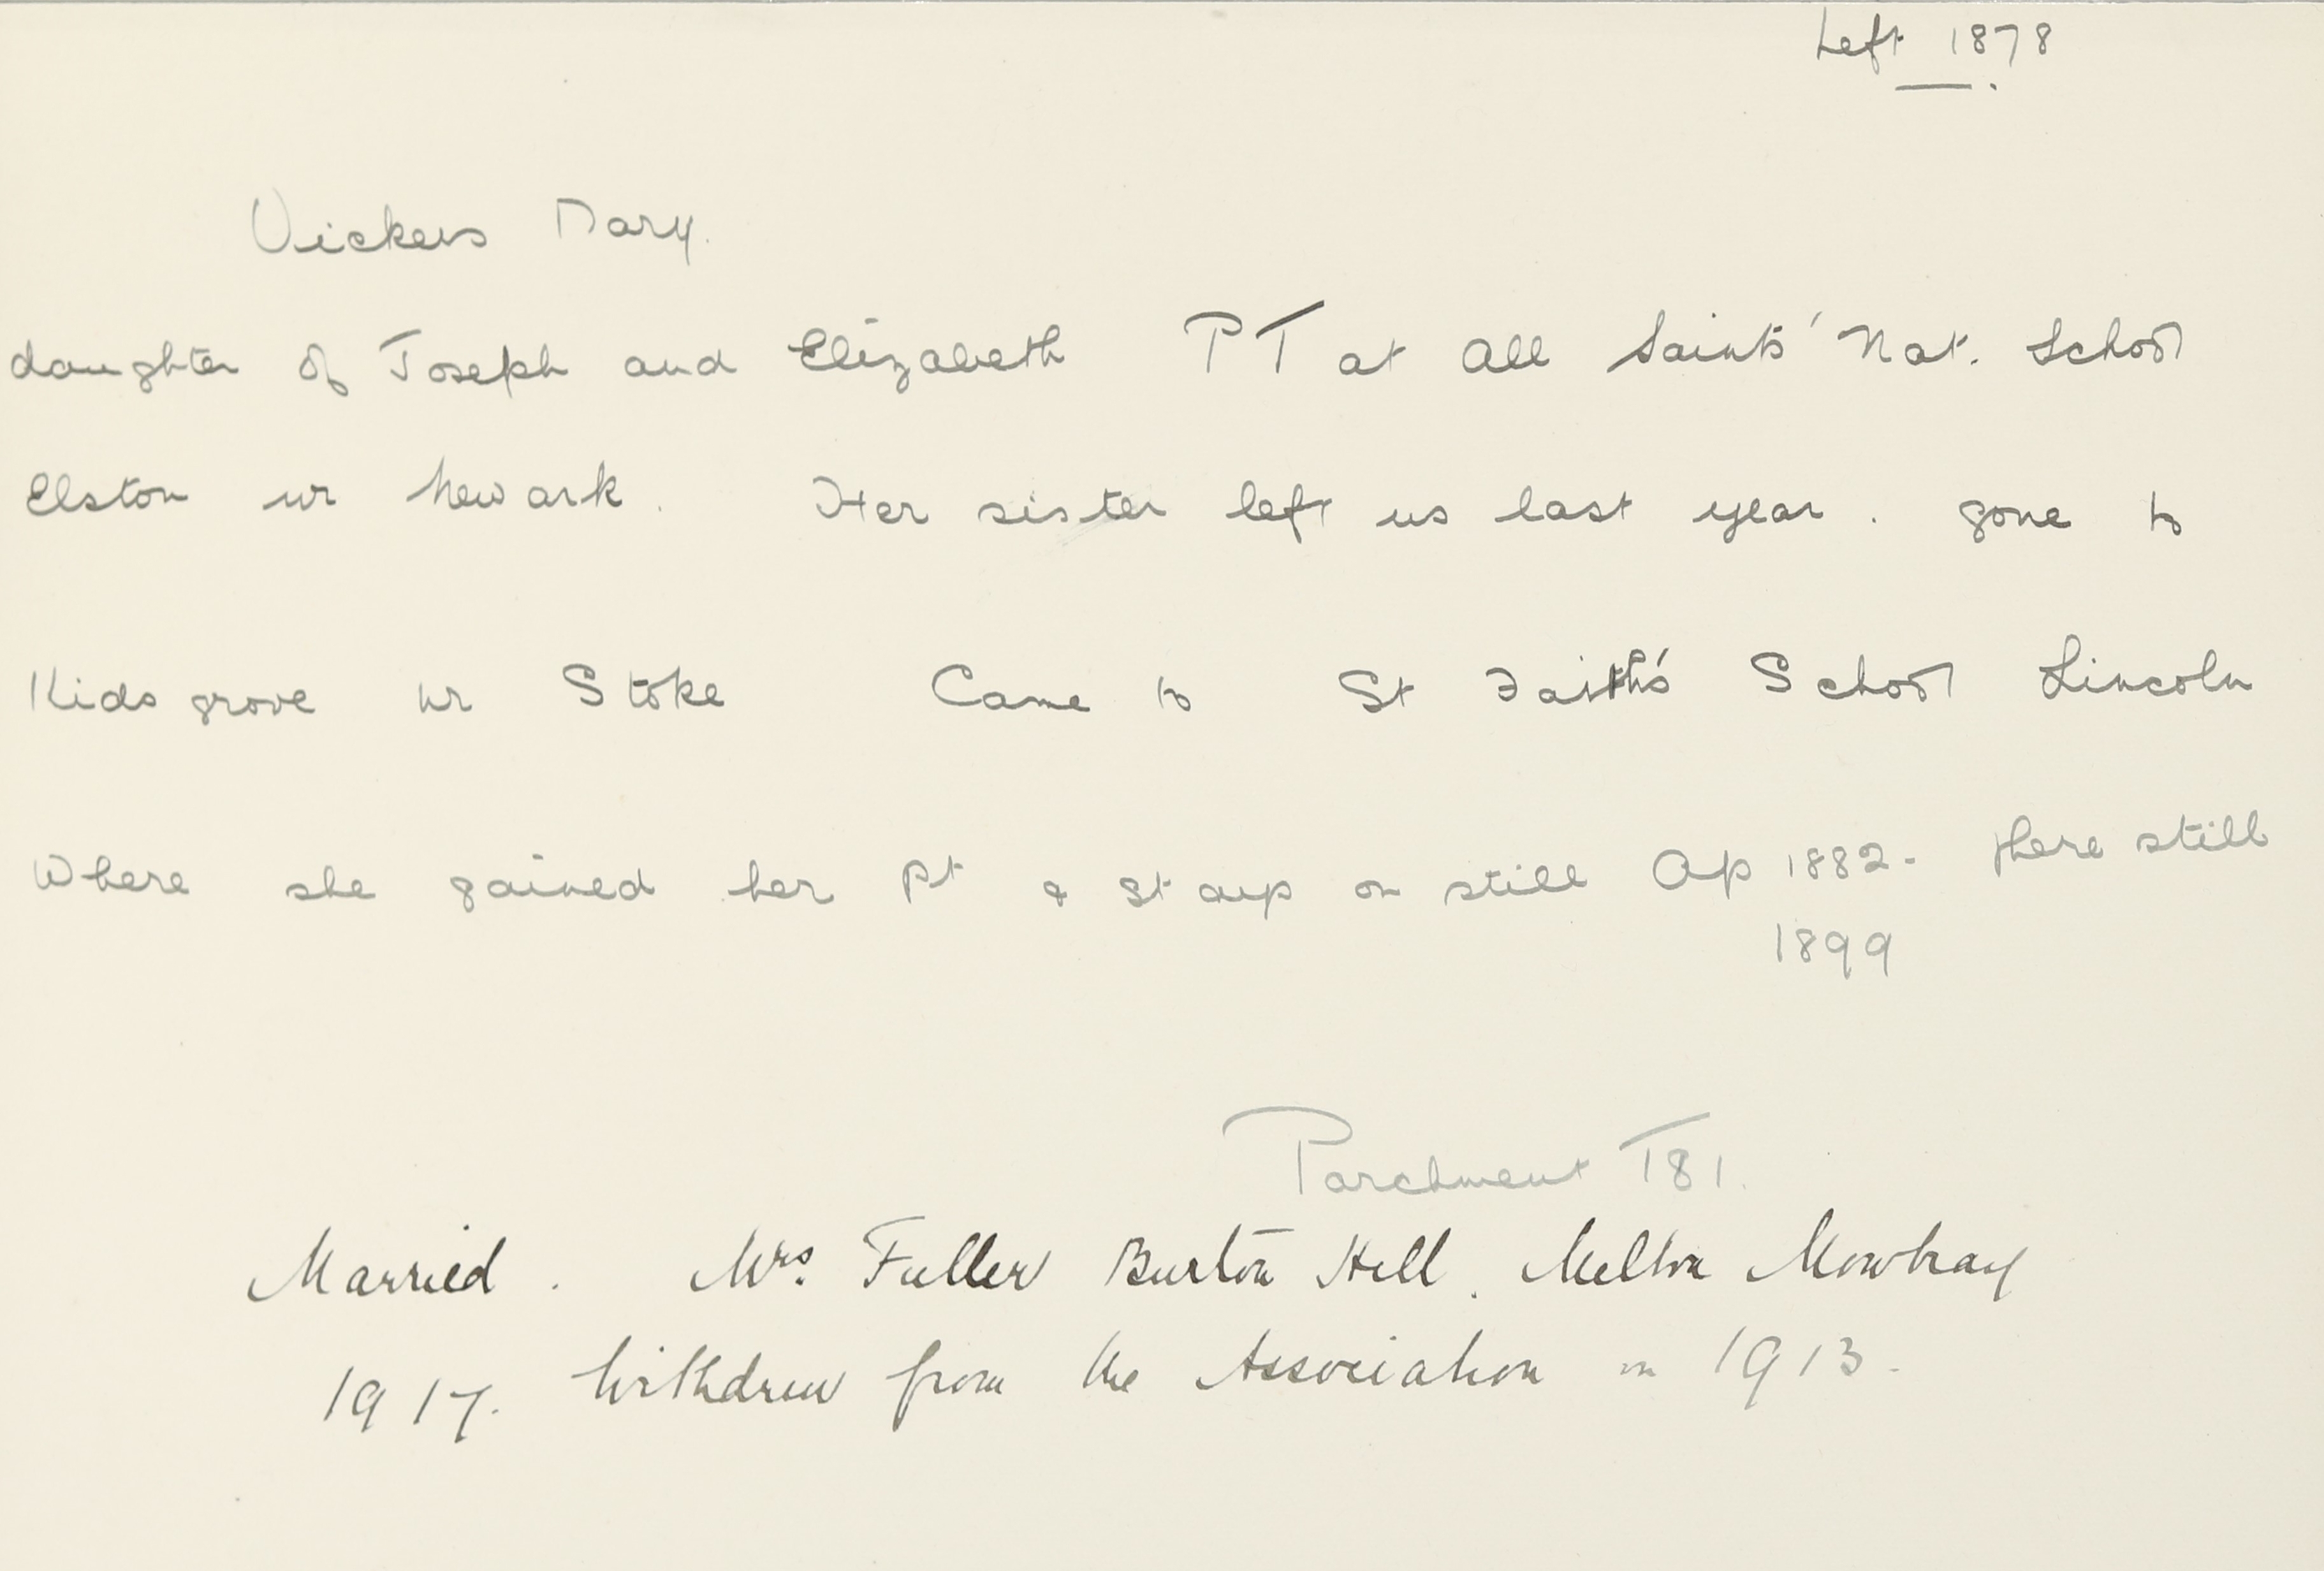 Left 1878
Vickers Mary.
daughter of Joseph and Elizabeth PT at All Saints' Nat. School
Elston nr Newark. Her sister left us last year. gone to
Kidsgrove nr Stoke Came to St Faith's School Lincoln
Where she gained her pt & st on still Ap 1882. there still
1899
Parchment 181.
Married. Mrs. Fuller Burton Hill. Melton Mowbray
1917. Withdrew from the Association in 1913.